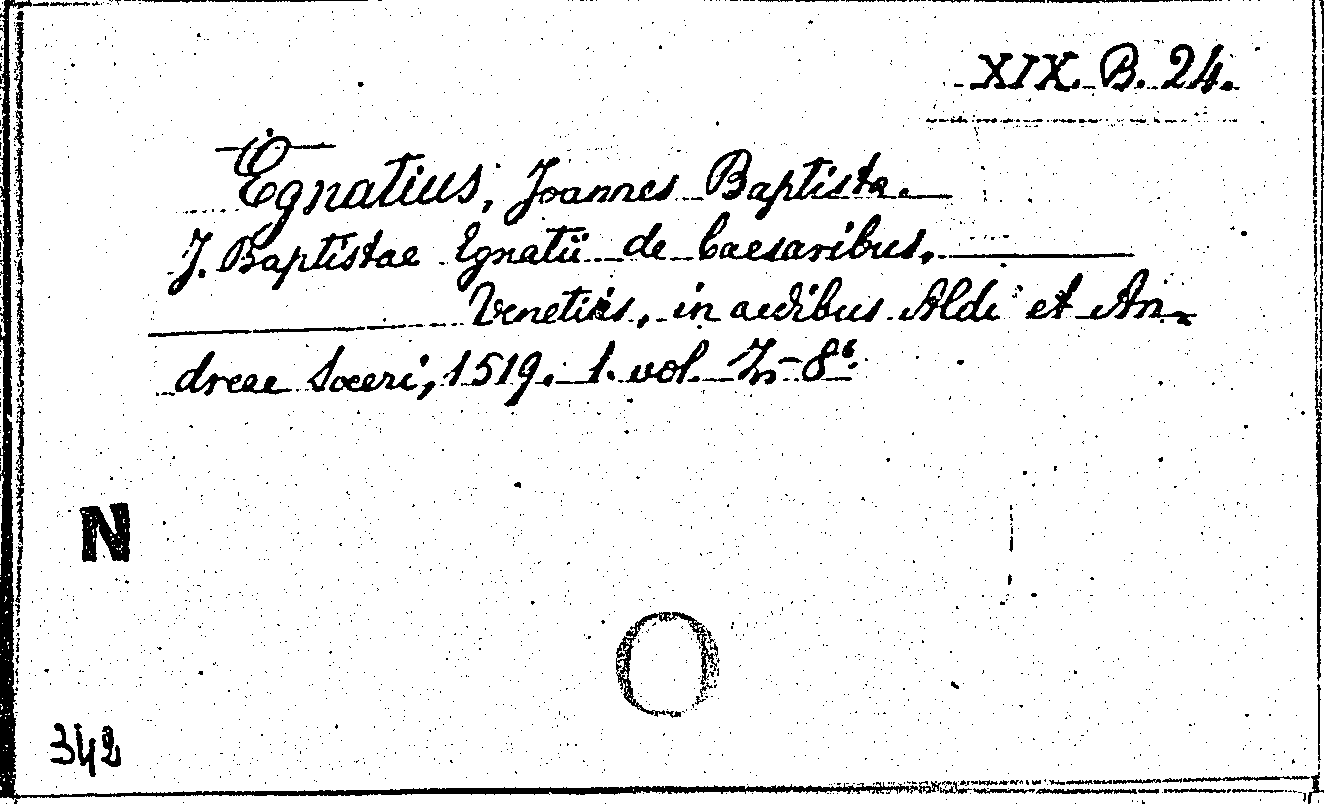 XIX. B. 24.
Egnatius, Joannes Baptista.
J. Baptistae Egnatii de Caesaribus.
Venetiis, in aedibus Aldi et An-
dreae Soceri, 1519. 1. vol. In-8º.
N
342